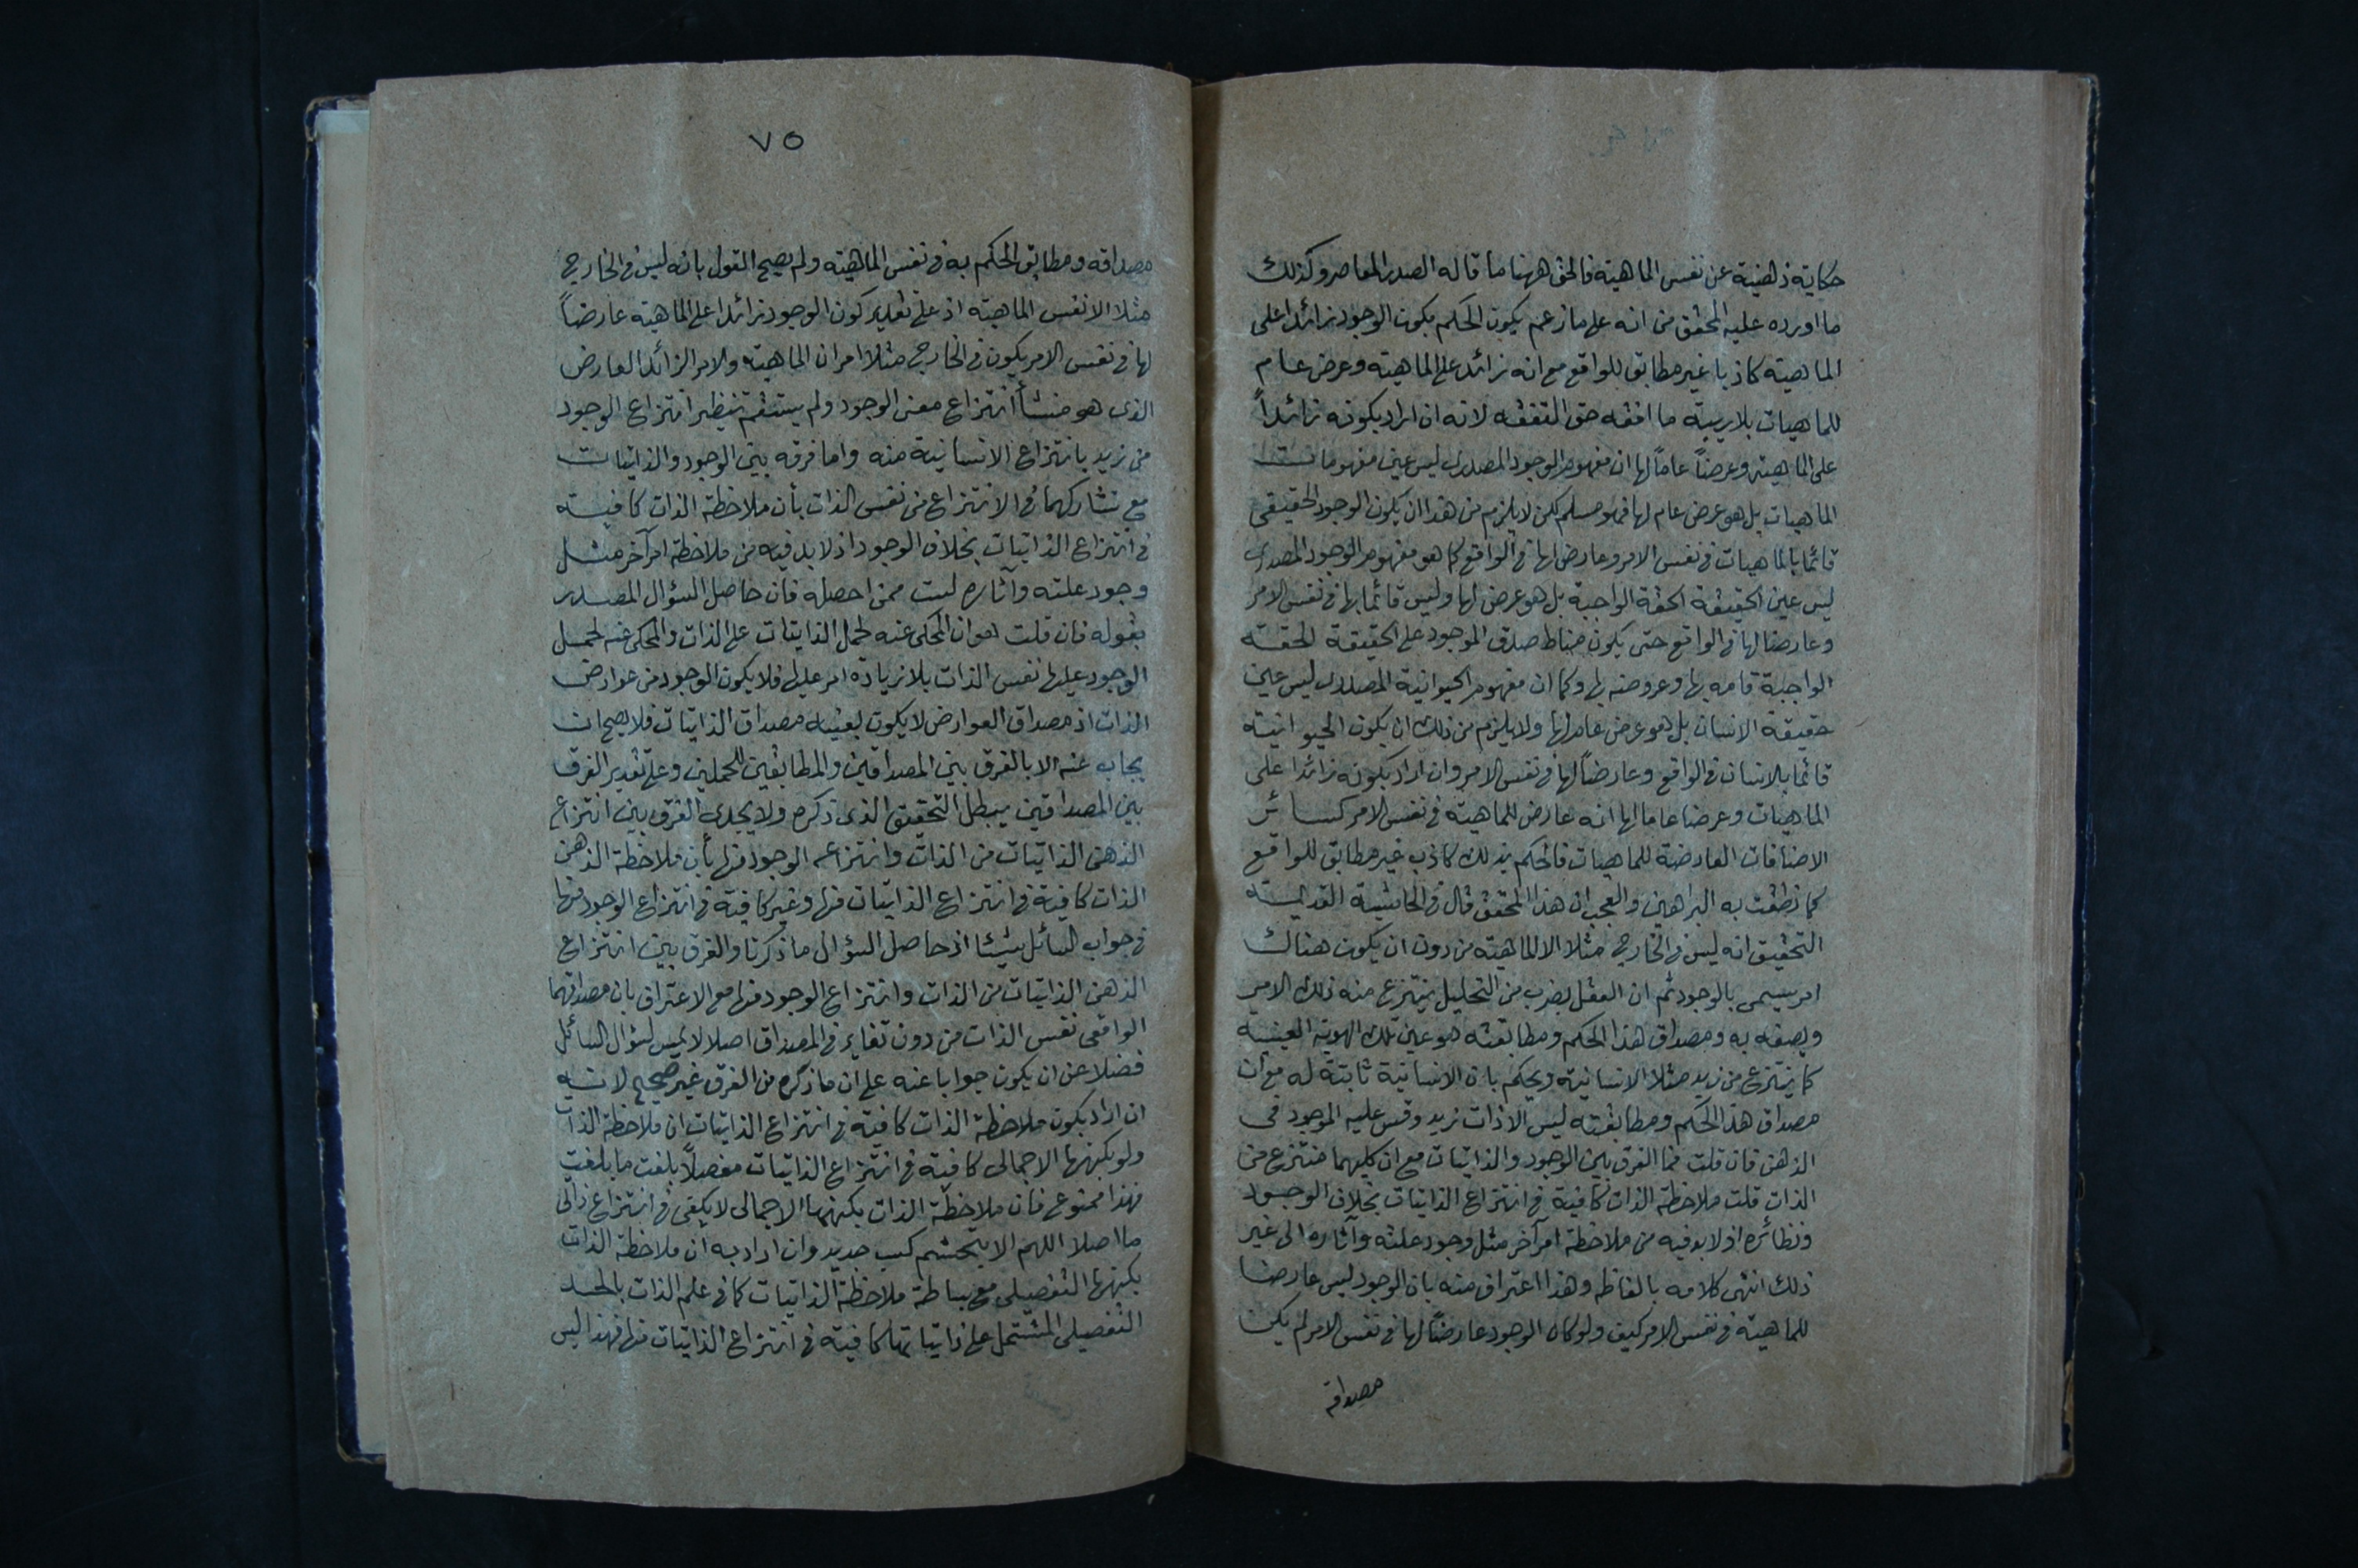 حكاية ذهنية عن نفس الماهية فالحق ههنا ما قاله الصدر المعاصر وكذلك
ما اورده عليه المحقق من انه على ما زعم يكون الحكم بكون الوجود زائدا على
الماهية كاذبا غير مطابق للواقع مع انه زائد على الماهية وعرض عام
للماهيات بلا ريبة ما افقه حق التفقه لانه ان اراد بكونه زائداً
على الماهية وعرضاً عاماً لها ان مفهوم الوجود المصدرى ليس عين مفهومات
الماهيات بل هو عرض عام لها فهو مسلم لكن لا يلزم من هذا ان يكون الوجود الحقيقى
قائما بالماهيات فى نفس الامر وعارضا لها فى الواقع كما هو مفهوم الوجود المصدرى
ليس عين الحقيقة الحقة الواجبة بل هو عرض لها وليس قائما بها فى نفس الامر
وعارضا لها فى الواقع حتى يكون مناط صدق الموجود على الحقيقة الحقة
الواجبة قيامه بها وعروضه لها وكما ان مفهوم الحيوانية المصدرى ليس عين
حقيقة الانسان بل هو عرض عام لها ولا يلزم من ذلك ان يكون الحيوانية
قائما بالانسان فى الواقع وعارضاً لها فى نفس الامر وان اراد بكونه زائدا على
الماهيات وعرضا عاما لها انه عارض للماهية فى نفس الامر كسائر
الاضافات العارضة للماهيات فالحكم بذلك كاذب غير مطابق للواقع
كما نطقت به البراهين والعجب ان هذا المحقق قال فى الحاشية القديمة
التحقيق انه ليس فى الخارج مثلا الا الماهية من دون ان يكون هناك
امر يسمى بالوجود ثم ان العقل بضرب من التحليل ينتزع منه ذلك الامر
ويصفه به ومصداق هذا الحكم ومطابقته هو عين تلك الهوية العينية
كما ينتزع من زيد مثلا الانسانية ويحكم بان الانسانية ثابتة له مع ان
مصداق هذا الحكم ومطابقته ليس الا ذات زيد وقس عليه الموجود فى
الذهن فان قلت فما الفرق بين الوجود والذاتيات مع ان كليهما منتزع من
الذات قلت ملاحظة الذات كافية فى انتزاع الذاتيات بخلاف الوجود
ونظائره اذ لا بد فيه من ملاحظة امر آخر مثل وجود علته وآثاره الى غير
ذلك انتهى كلامه بالفاظه وهذا اعتراف منه بان الوجود ليس عارضا
للماهية فى نفس الامر كيف ولو كان الوجود عارضاً لها فى نفس الامر لم يكن
مصداقه
٧٥
مصداقه ومطابق الحكم به فى نفس الماهية ولم يصح القول بانه ليس فى الخارج
مثلا الا نفس الماهية اذ على تقدير كون الوجود زائدا على الماهية عارضاً
لها فى نفس الامر يكون فى الخارج مثلا امران الماهية والامر الزائد العارض
الذى هو منشأ انتزاع معنى الوجود ولم يستقم تنظير انتزاع الوجود
من زيد بانتزاع الانسانية منه واما فرقه بين الوجود والذاتيات
مع تشاركهما فى الانتزاع من نفس الذات بأن ملاحظة الذات كافية
فى انتزاع الذاتيات بخلاف الوجود اذ لا بد فيه من ملاحظة امر آخر مثل
وجود علته وآثاره لست ممن احصله فان حاصل السؤال المصدر
بقوله فان قلت هو ان المحكى عنه لحمل الذاتيات على الذات والمحكى عنه لحمل
الوجود عليها نفس الذات بلا زيادة امر عليها فلا يكون الوجود من عوارض
الذات اذ مصداق العوارض لا يكون بعينه مصداق الذاتيات فلا يصح ان
يجاب عنه الا بالفرق بين المصداقين والمطابقين للحملين وعلى تقدير الفرق
بين المصداقين يبطل التحقيق الذى ذكره ولا يجدى الفرق بين انتزاع
الذهن الذاتيات من الذات وانتزاعه الوجود منها بأن ملاحظة الذهن
الذات كافية فى انتزاع الذاتيات منها وغير كافية فى انتزاع الوجود منها
فى جواب السائل شيئا اذ حاصل السؤال ما ذكرنا والفرق بين انتزاع
الذهن الذاتيات من الذات وانتزاع الوجود منها مع الاعتراف بان مصداقهما
الواقعى نفس الذات من دون تغاير فى المصداق اصلا لا يمس لسؤال السائل
فضلا عن ان يكون جوابا عنه على ان ما ذكره من الفرق غير صحيح لانه
ان اراد بكون ملاحظة الذات كافية فى انتزاع الذاتيات ان ملاحظة الذات
ولو بكنهها الاجمالى كافية فى انتزاع الذاتيات مفصلاً بلغت ما بلغت
فهذا ممنوع فان ملاحظة الذات بكنهها الاجمالى لا يكفى فى انتزاع ذاتى
ما اصلا اللهم الا بتجشم كسب جديد وان اراد به ان ملاحظة الذات
بكنهها التفصيلى مع بساطة ملاحظة الذاتيات كما فى علم الذات بالحد
التفصيلى المشتمل على ذاتياتها كافية فى انتزاع الذاتيات منها فهذا ليس